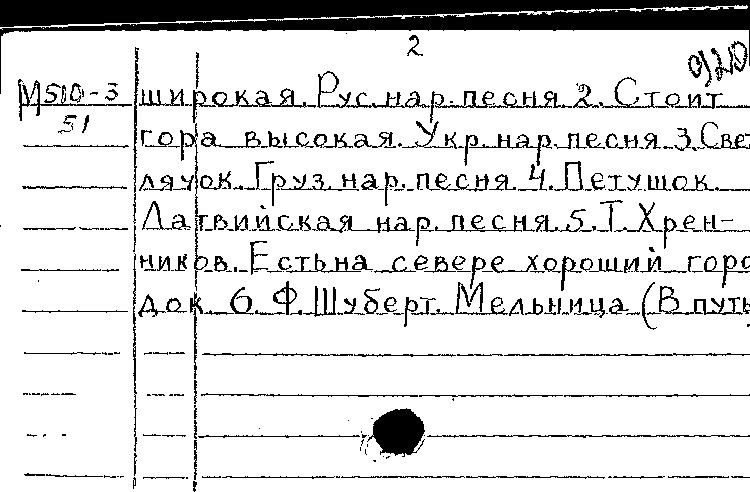 2
920
М510-3
51
широкая. Рус. нар. песня. 2. Стоит
гора высокая. Укр. нар. песня. 3. Све
лячок. Груз. нар. песня. 4. Петушок.
Латвийская нар. песня. 5. Т. Хрен-
ников. Есть на севере хороший горо
док. 6. Ф. Шуберт. Мельница (В путь